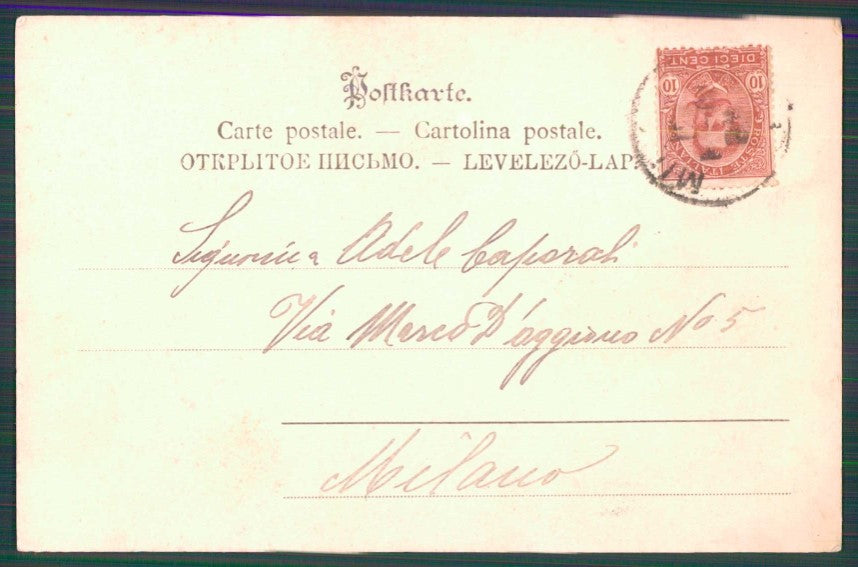 Postkarte.
Carte postale. — Cartolina postale.
ОТКРЫТОЕ ПИСЬМО. — LEVELEZŐ-LAP
DIECI CENT.
10 10
POSTE ITALIANE
MI
Signorina Adele Caporali
Via Marco D'aggiono No 5
Milano